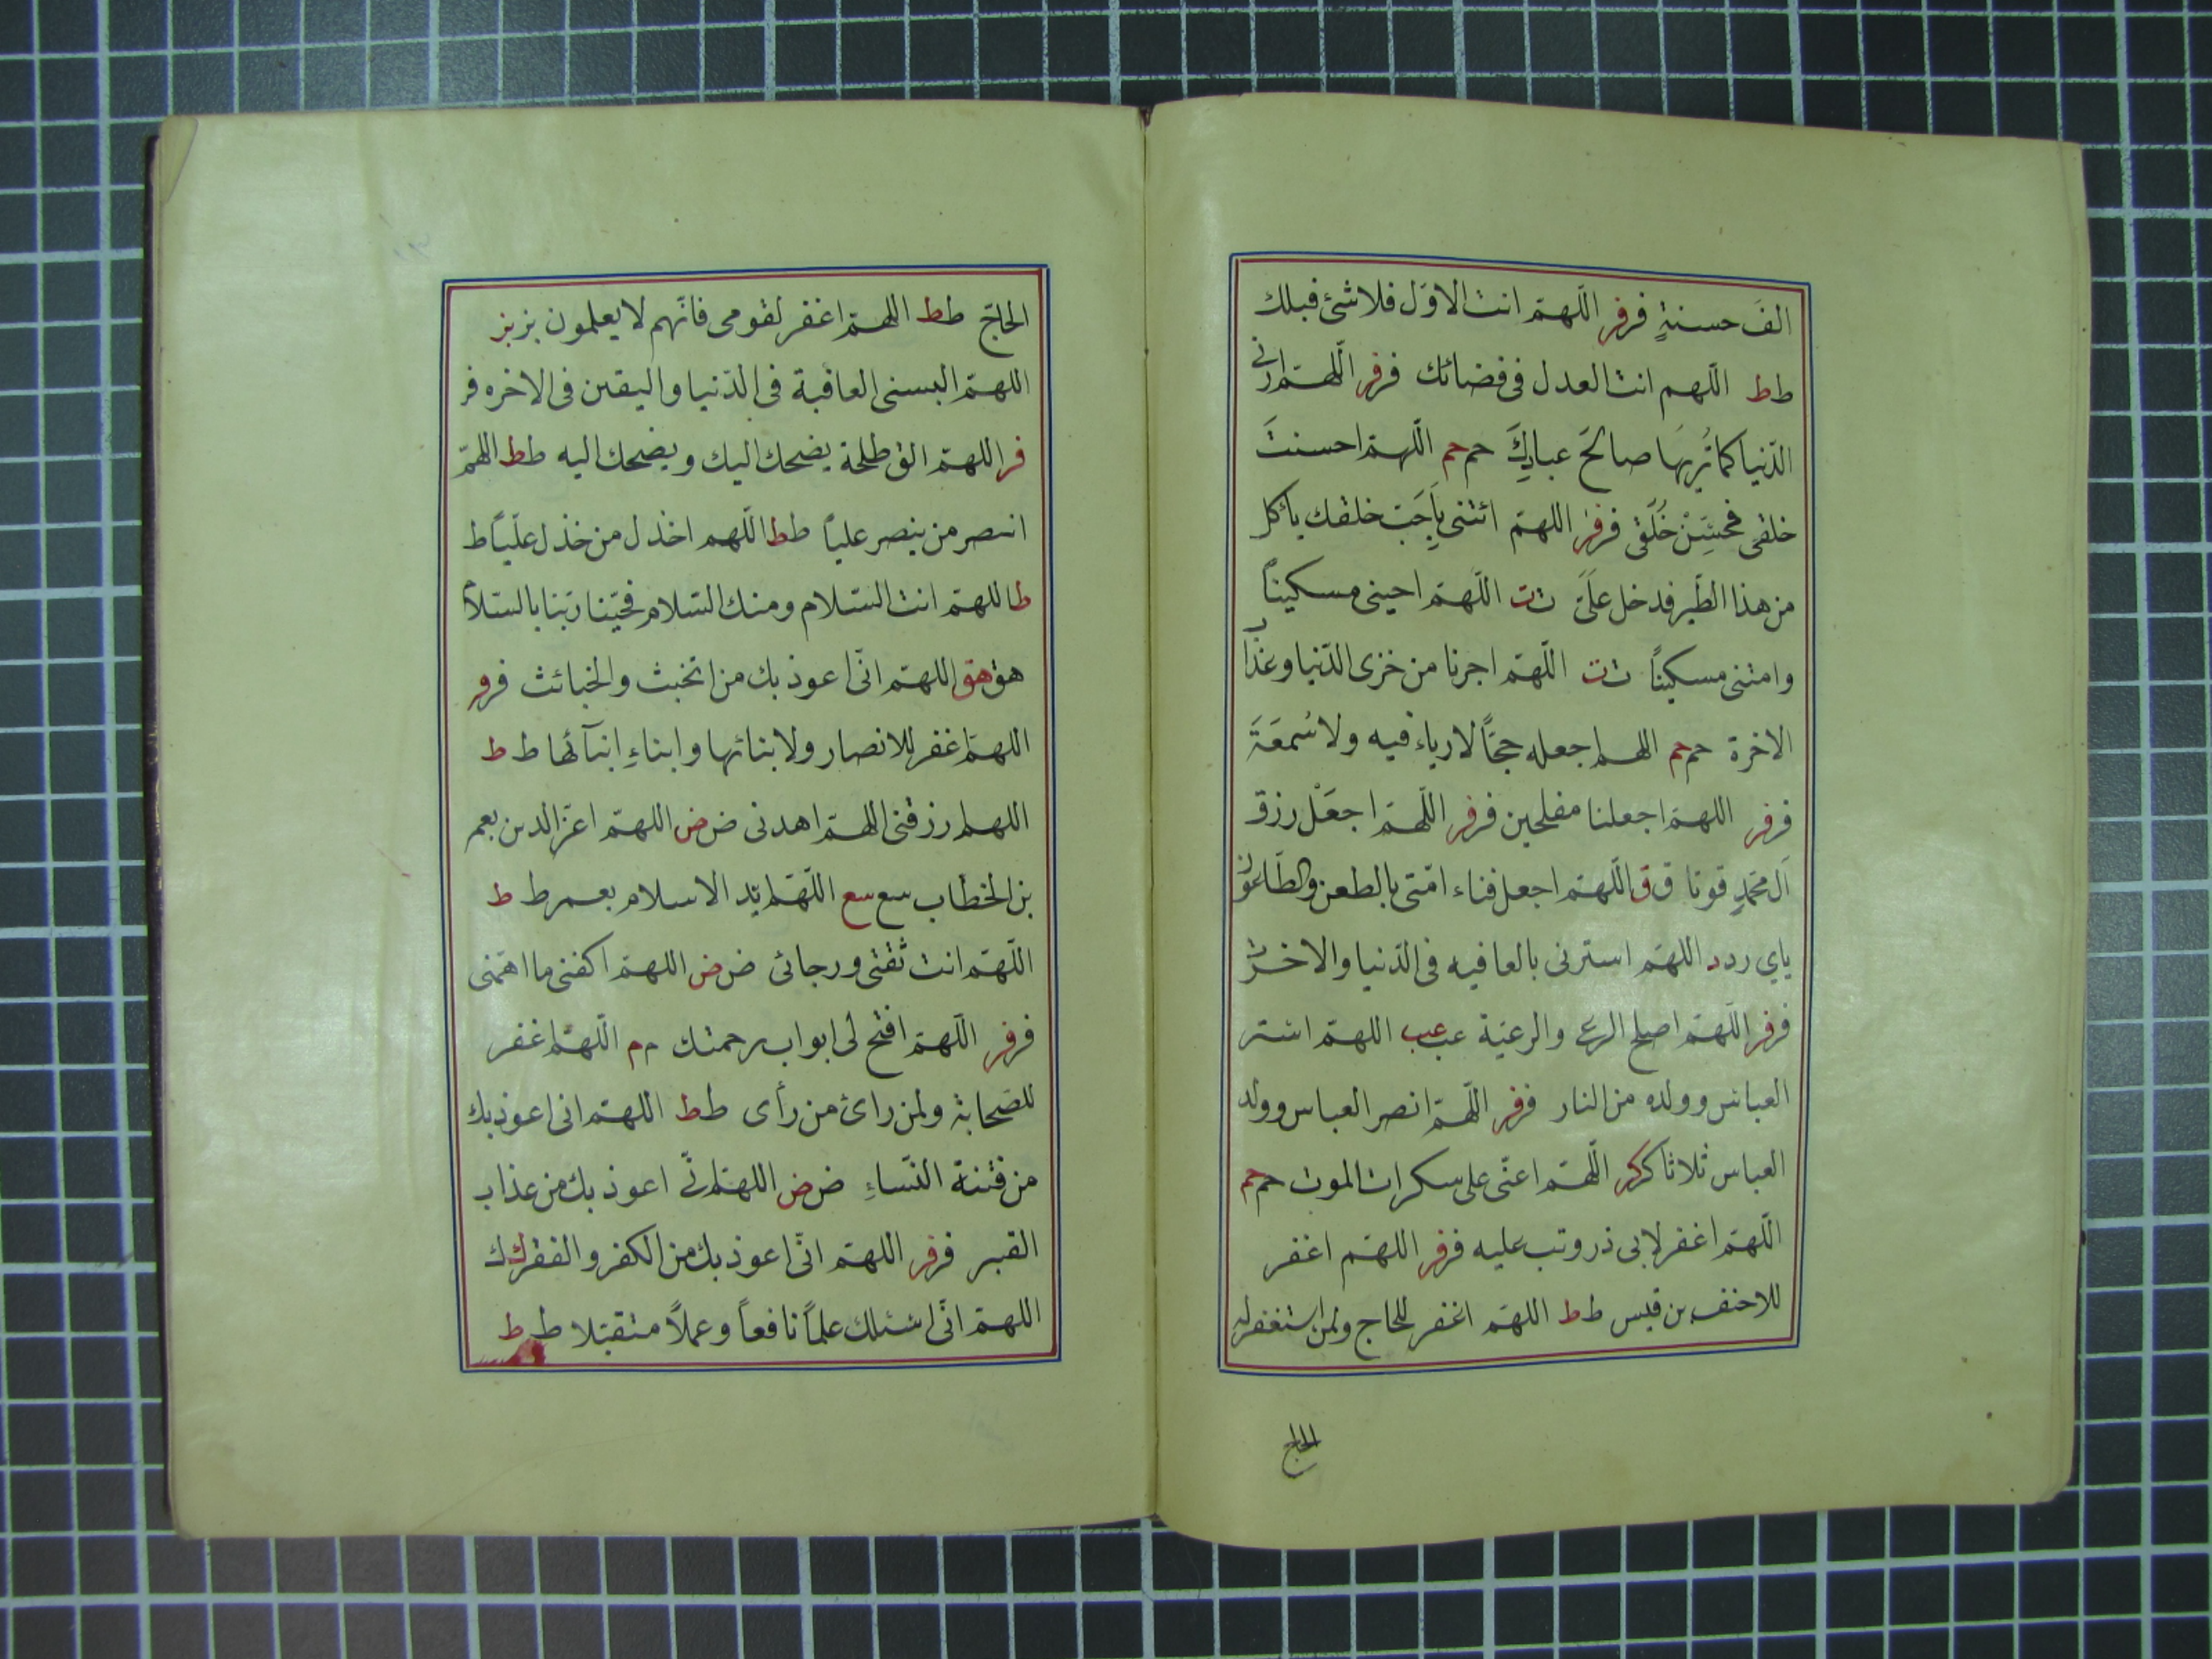 الفَ حسنةٍ فر فر اللّهمّ انت الاوّل فلا شئ قبلك
ط ط اللّهم انت العدل فى قضائك فر فر اللّهمّ ارنى
الدّنيا كما تُريهَا صالحَ عبادِكَ حم حم اللّهمّ احسنتَ
خلقى فحسِّنْ خُلُقى فر فر اللهمّ ائتنى بِاَحَبّ خلقك يأكل
من هذا الطّير فدخل علَىّ ت ت اللّهمّ احينى مسكيناً
وامتنى مسكيناً ت ت اللّهمّ اجرنا من خزى الدّنيا وعذاب
الاخرة حم حم اللهم اجعله حجّاً لا رياء فيه ولا سُمعَةَ
فر فر اللهمّ اجعلنا مفلحين فر فر اللّهمّ اجعَلْ رزق
آل محمّدٍ قوتا ق ق اللّهمّ اجعل فناء امّتى بالطعن والطّاعون
ياي ر د د اللهمّ استرنى بالعافيه فى الدّنيا والاخرة
فر فر اللّهمّ اصلح الرعى والرعيّة عب عب اللهمّ استر
العباس وولده من النار فر فر اللّهمّ انصر العباس وولد
العباس ثلاثا كر كر اللّهمّ اعنّى على سكرات الموت حم حم
اللّهمّ اغفر لابى ذر وتب عليه فر فر اللهمّ اغفر
للاحنف بن قيس ط ط اللهمّ اغفر للحاج ولمن استغفر له
الحاج
الحاجّ ط ط اللهمّ اغفر لقومى فانّهم لا يعلمون بز بز
اللهمّ البسنى العافية فى الدّنيا واليقين فى الاخره فر
فر اللهمّ الق طلحة يضحك اليك ويضحك اليه ط ط اللهمّ
انتصر من ينصر علياً ط ط اللّهم اخذل من خذل عليّاً ط
ط اللهمّ انت السّلام ومنك السّلام فحيّنا ربّنا بالسّلام
هق هق اللهمّ انّى اعوذ بك من الخبث والخبائث فر فر
اللهمّ اغفر للانصار ولابنائها وابناءِ ابنآئها ط ط
اللهم ارزقنى اللهمّ اهدنى ض ض اللهمّ اعزّ الدين بعمر
بن الخطاب سع سع اللّهمّ ايّد الاسلام بعمر ط ط
اللّهمّ انت ثقتى ورجائى ض ض اللهمّ اكفنى ما اهمّنى
فر فر اللّهمّ افتح لى ابواب رحمتك م م اللّهمّ اغفر
للصّحابة ولمن رائ من رأى ط ط اللهمّ انى اعوذ بك
من فتنة النّساءِ ض ض اللهمّ انّى اعوذ بك من عذاب
القبر فر فر اللهمّ انّى اعوذ بك من الكفر والفقر ك ك
اللهمّ انّى اسئلك علماً نافعاً وعملاً متقبّلا ط ط